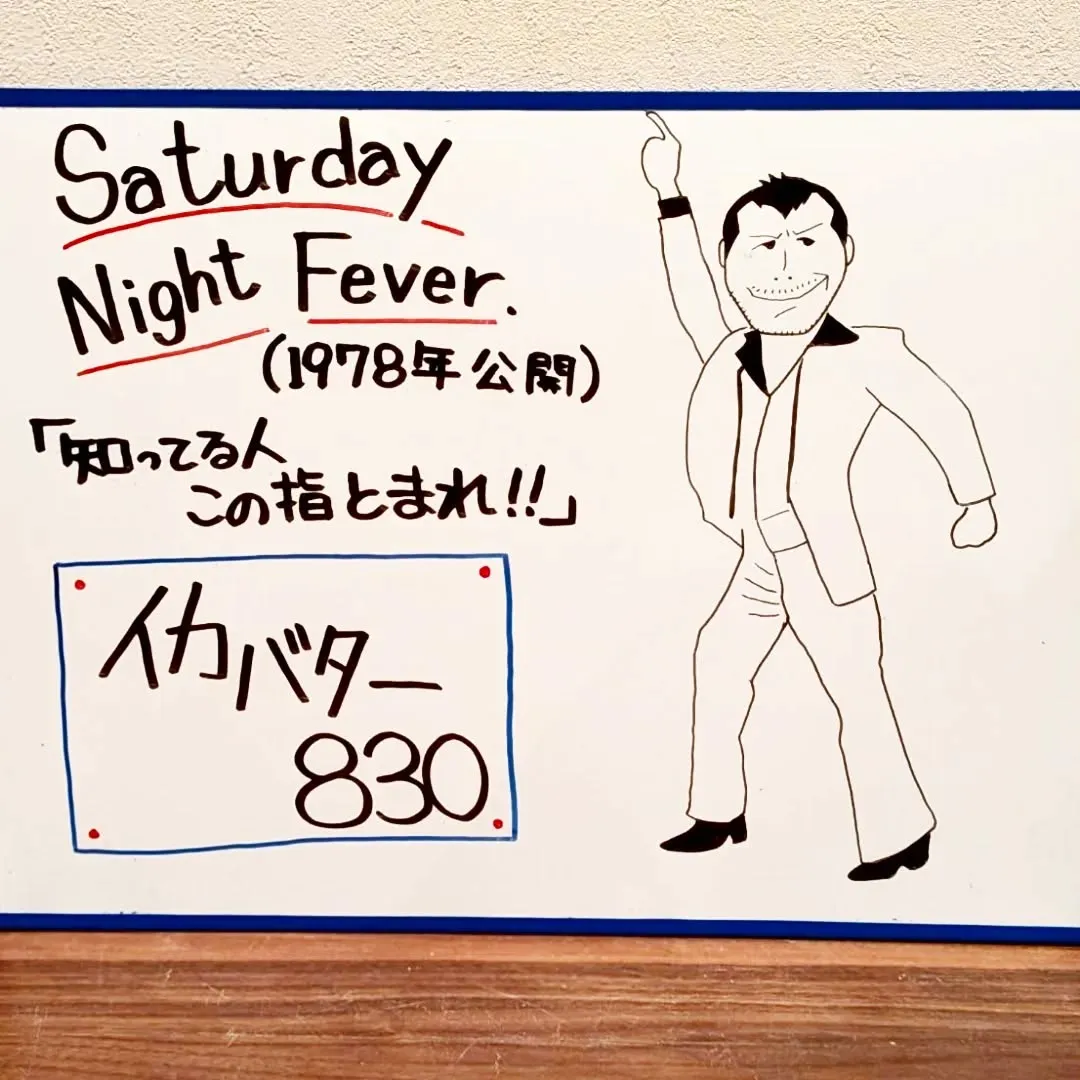 Saturday
Night Fever.
(1978年公開)
「知ってる人
この指とまれ!!」
イカバター
830